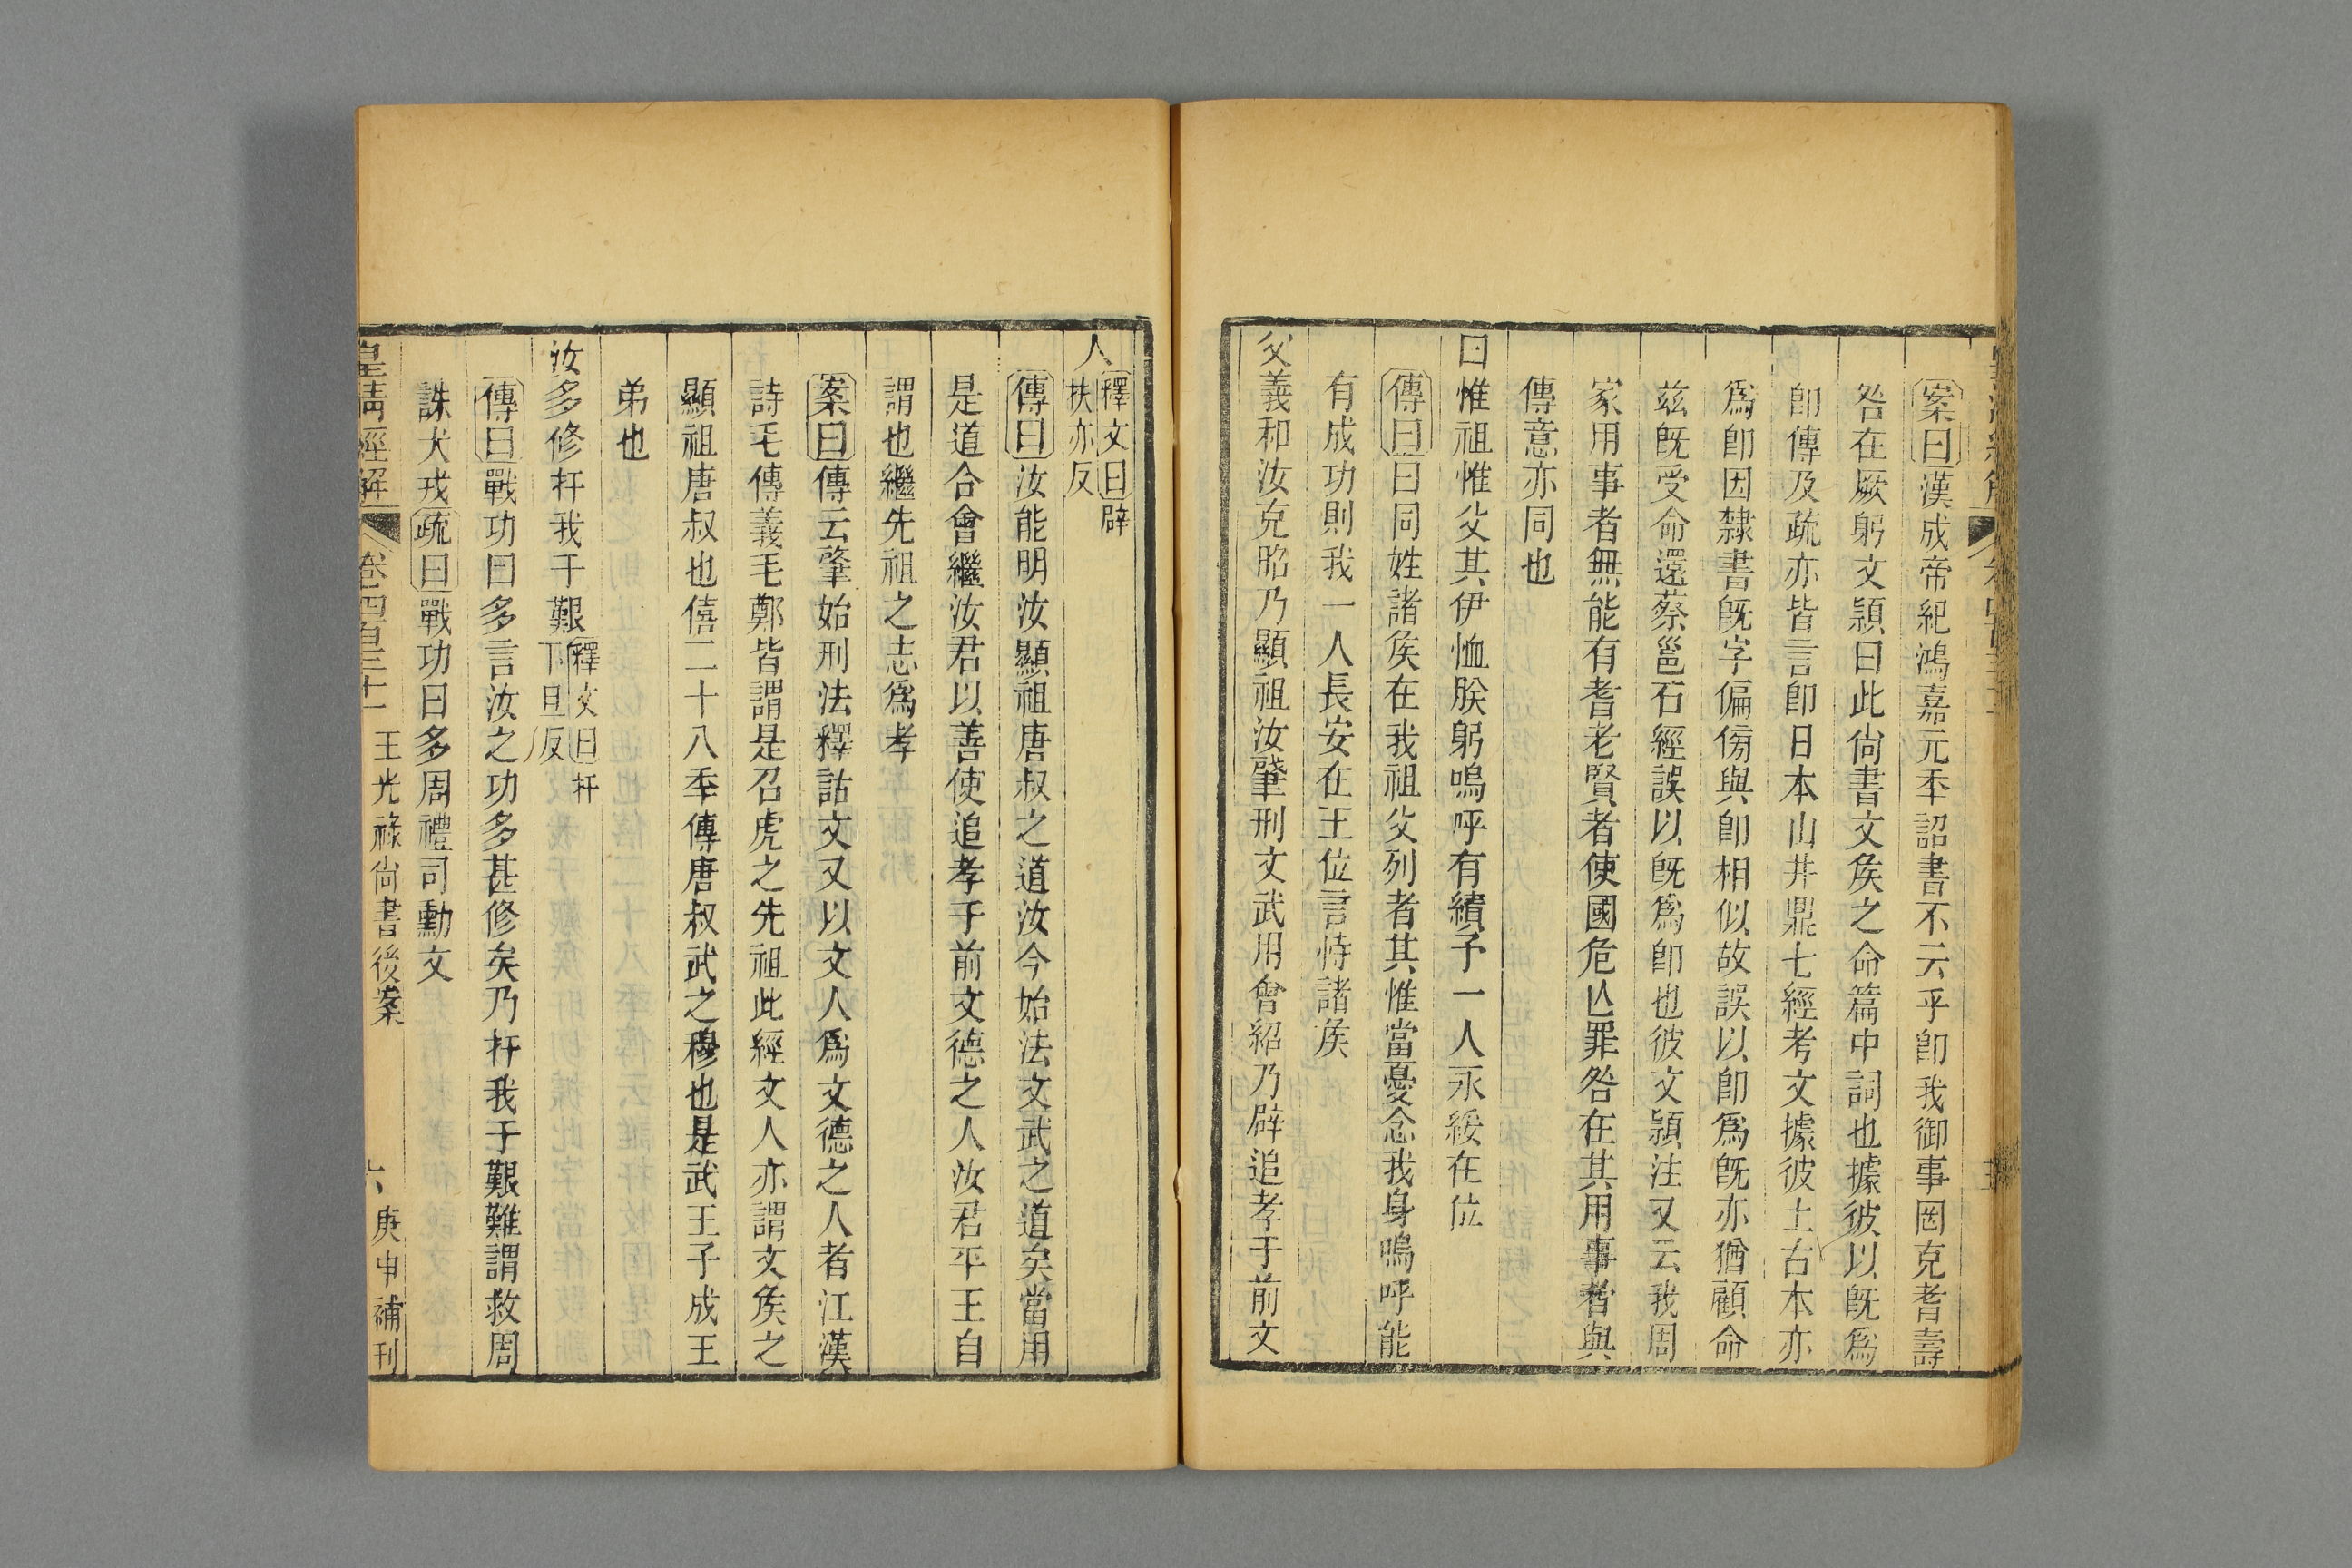 案曰漢成帝紀鴻嘉元秊詔書不云乎卽我御事罔克耆壽
咎在厥躬文穎曰此尙書文矦之命篇中詞也據彼以旣爲
卽傳及疏亦皆言卽日本山井鼎七經考文據彼土古本亦
爲卽因隸書旣字偏傍與卽相似故誤以卽爲旣亦猶顧命
茲旣受命還蔡邕石經誤以旣爲卽也彼文穎注又云我周
家用事者無能有耆老賢者使國危亾罪咎在其用事者與
傳意亦同也
曰惟祖惟父其伊恤朕躬嗚呼有績予一人永綏在位
傳曰曰同姓諸矦在我祖父列者其惟當憂念我身嗚呼能
有成功則我一人長安在王位言恃諸矦
父義和汝克昭乃顯祖汝肇刑文武用會紹乃辟追孝于前文
人釋文曰辟扶亦反
傳曰汝能明汝顯祖唐叔之道汝今始法文武之道矣當用
是道合會繼汝君以善使追孝于前文德之人汝君平王自
謂也繼先祖之志爲孝
案曰傳云肇始刑法釋詁文又以文人爲文德之人者江漢
詩毛傳義毛鄭皆謂是召虎之先祖此經文人亦謂文矦之
顯祖唐叔也僖二十八秊傳唐叔武之穆也是武王子成王
弟也
汝多修扞我于艱釋文曰扞下旦反
傳曰戰功曰多言汝之功多甚修矣乃扞我于艱難謂救周
誅犬戎疏曰戰功曰多周禮司勳文
皇清經解 卷四百三十一 王光祿尙書後案 六 庚申補刊